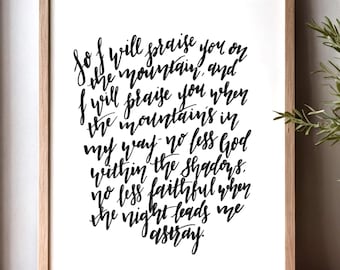 So I will praise you on
the mountain, and
I will praise you when
the mountain's in
my way no less God
within the shadows.
no less faithful when
the night leads me
astray.